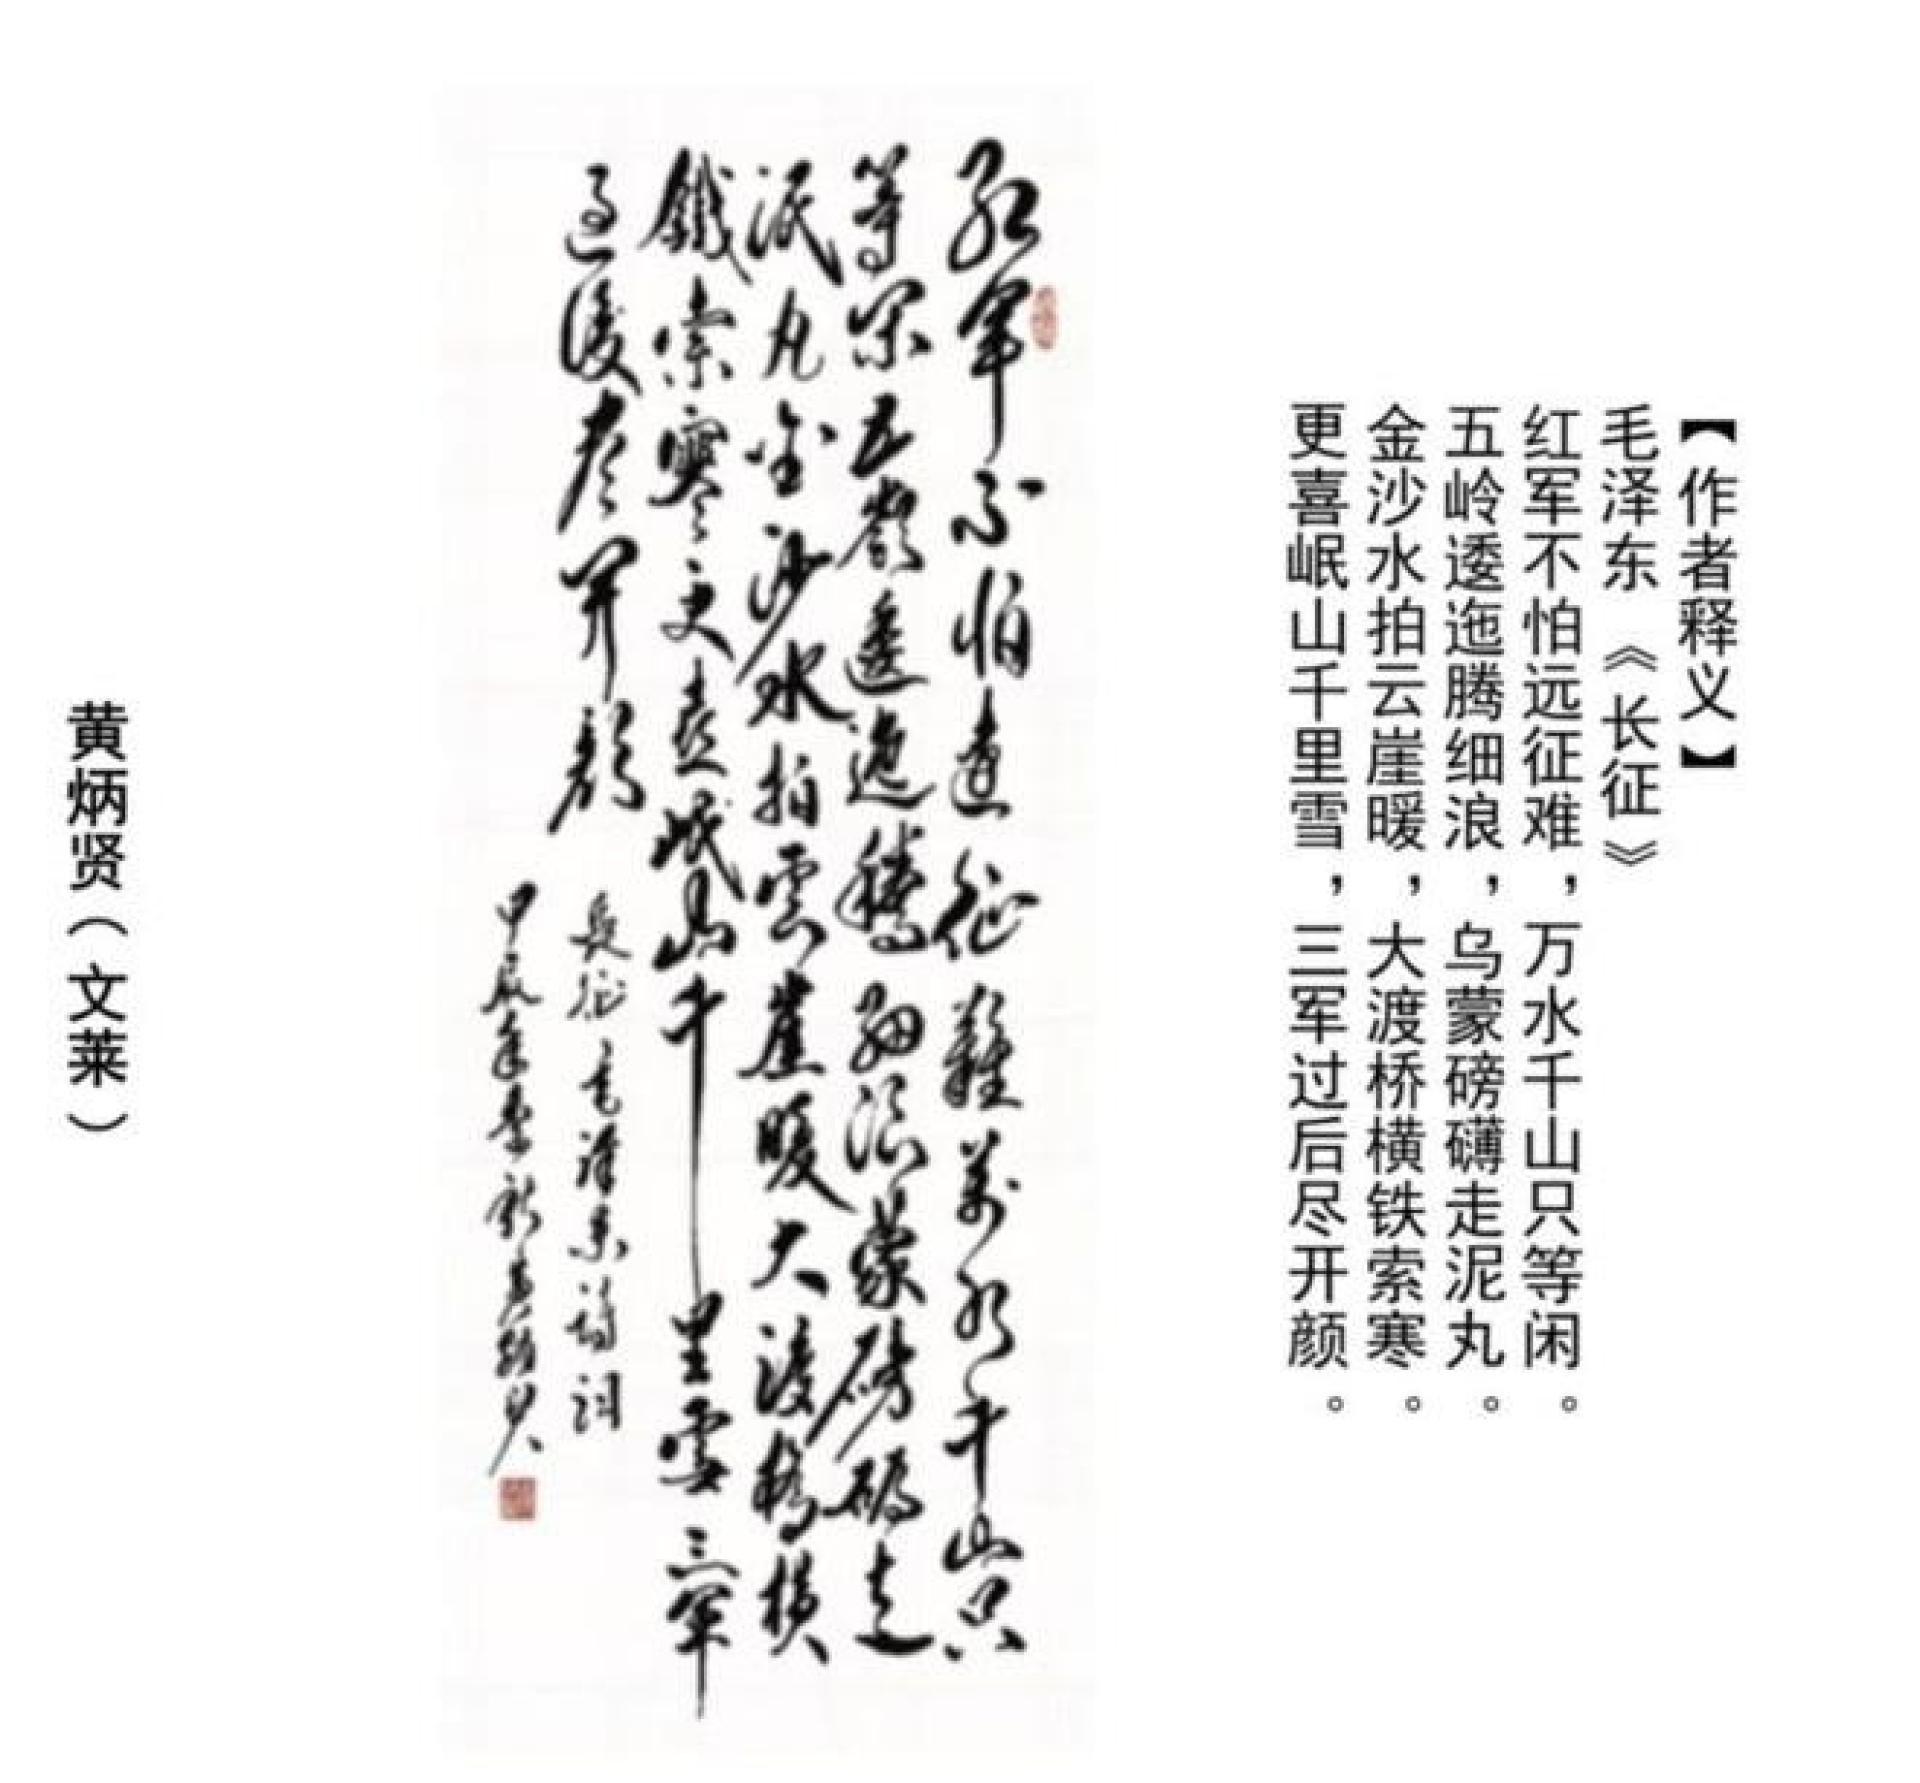 【作者释义】
毛泽东 《长征》
红军不怕远征难，万水千山只等闲。
五岭逶迤腾细浪，乌蒙磅礴走泥丸。
金沙水拍云崖暖，大渡桥横铁索寒。
更喜岷山千里雪，三军过后尽开颜。
紅軍不怕遠征難萬水千山只
等閑五嶺逶迤騰細浪蒙磅礴走
泥丸金沙水拍雲崖暖大渡橋橫
鐵索寒更喜岷山千里雪三軍
過後盡開顏
長征毛澤東詩詞
甲辰年黃炳賢
黄炳贤（文莱）